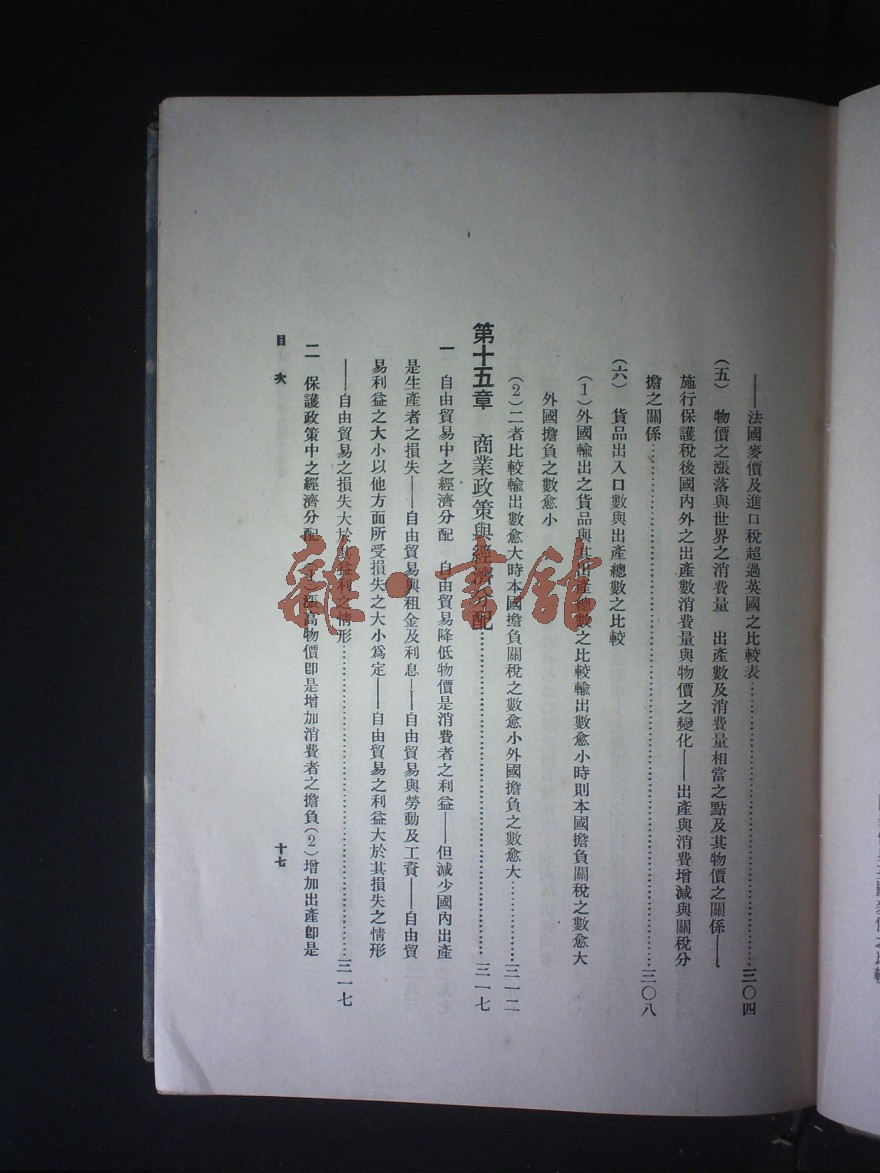 ——法國麥價及進口稅超過英國之比較表……三〇四
(五) 物價之漲落與世界之消費量 出產數及消費量相當之點及其物價之關係——
施行保護稅後國內外之出產數消費量與物價之變化——出產與消費增減與關稅分
擔之關係……三〇八
(六) 貨品出入口數與出產總數之比較
(1)外國輸出之貨品與其出產總數之比較輸出數愈小時則本國擔負關稅之數愈大
外國擔負之數愈小
(2)二者比較輸出數愈大時本國擔負關稅之數愈小外國擔負之數愈大……三一二
第十五章 商業政策與經濟分配……三一七
一 自由貿易中之經濟分配 自由貿易降低物價是消費者之利益——但減少國內出產
是生產者之損失——自由貿易與租金及利息——自由貿易與勞動及工資——自由貿
易利益之大小以他方面所受損失之大小爲定——自由貿易之利益大於其損失之情形
——自由貿易之損失大於其益利之情形……三一七
二 保護政策中之經濟分配 (1)漲高物價卽是增加消費者之擔負(2)增加出產卽是
目次
十七
雜·書館